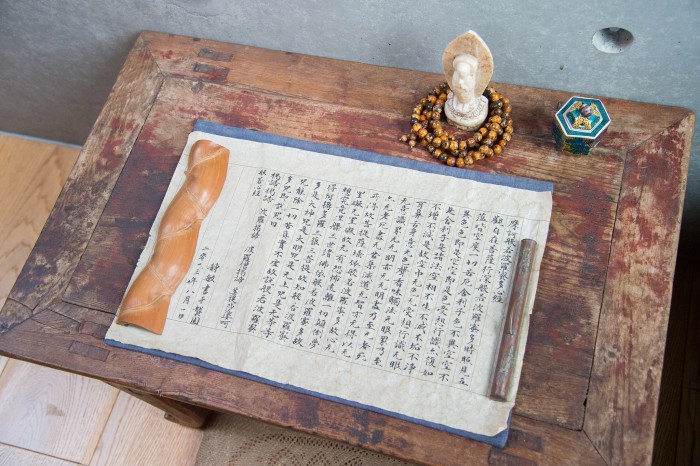 摩訶般若波羅蜜多心經
觀自在菩薩行深般若波羅蜜多時照見五
蘊皆空度一切苦厄舍利子色不異空空不
異色色即是空空即是色受想行識亦復如
是舍利子是諸法空相不生不滅不垢不淨
不增不減是故空中无色无受想行識无眼
耳鼻舌身意无色聲香味觸法无眼界乃至
无意識界无无明亦无无明盡乃至无老死
亦无老死盡无苦集滅道无智亦无得以无
所得故菩提薩埵依般若波羅蜜多故心无
罣礙无罣礙故无有恐怖遠離一切顛倒夢
想究竟涅槃三世諸佛依般若波羅蜜多故
得阿耨多羅三藐三菩提故知般若波羅蜜
多是大神咒是大明咒是无上咒是无等等
咒能除一切苦真實不虛故說般若波羅蜜
多咒即說咒曰
揭諦揭諦 波羅揭諦 波羅僧揭諦 菩提薩婆訶
般若心經
静敏書于磐園
二零一三年八月一日